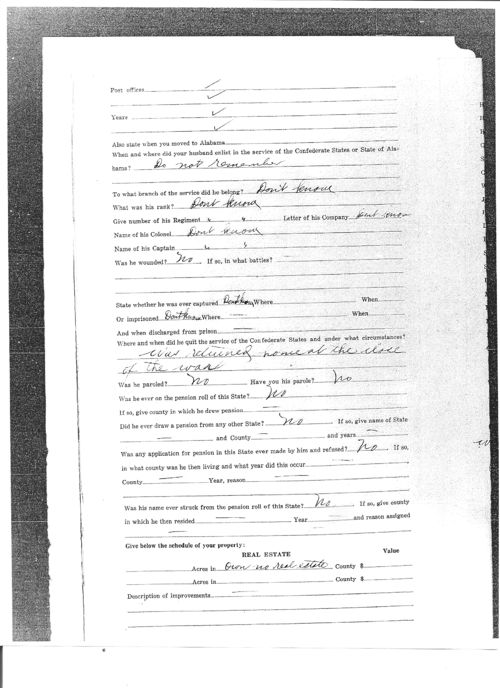 Post offices
Years
Also state when you moved to Alabama
When and where did your husband enlist in the service of the Confederate States or State of Ala-
bama? Do not remember
To what branch of the service did he belong? Don't know
What was his rank? Dont know
Give number of his Regiment " " Letter of his Company dont know
Name of his Colonel Dont know
Name of his Captain " "
Was he wounded? No If so, in what battles?
State whether he was ever captured Dont know Where When
Or imprisoned Dont know Where When
And when discharged from prison
Where and when did he quit the service of the Confederate States and under what circumstances?
was returned home at the close
of the war
Was he paroled? No Have you his parole? No
Was he ever on the pension roll of this State? No
If so, give county in which he drew pension
Did he ever draw a pension from any other State? No If so, give name of State
and County and years
Was any application for pension in this State ever made by him and refused? No If so,
in what county was he then living and what year did this occur
County Year, reason
Was his name ever struck from the pension roll of this State? No If so, give county
in which he then resided Year and reason assigned
Give below the schedule of your property:
REAL ESTATE Value
Acres in Own no real estate County $
Acres in County $
Description of improvements